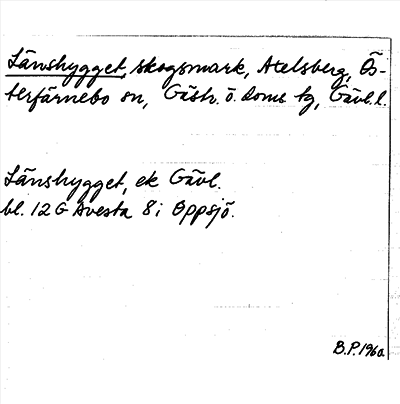 Länshygget, skogsmark, Atelsberg, Ös-
terfärnebo sn, Gästr. ö. Doms tg, Gävl. l.
Länshygget, ek Gävl.
bl. 12 G Avesta 8 i Oppsjö.
B.P. 1960